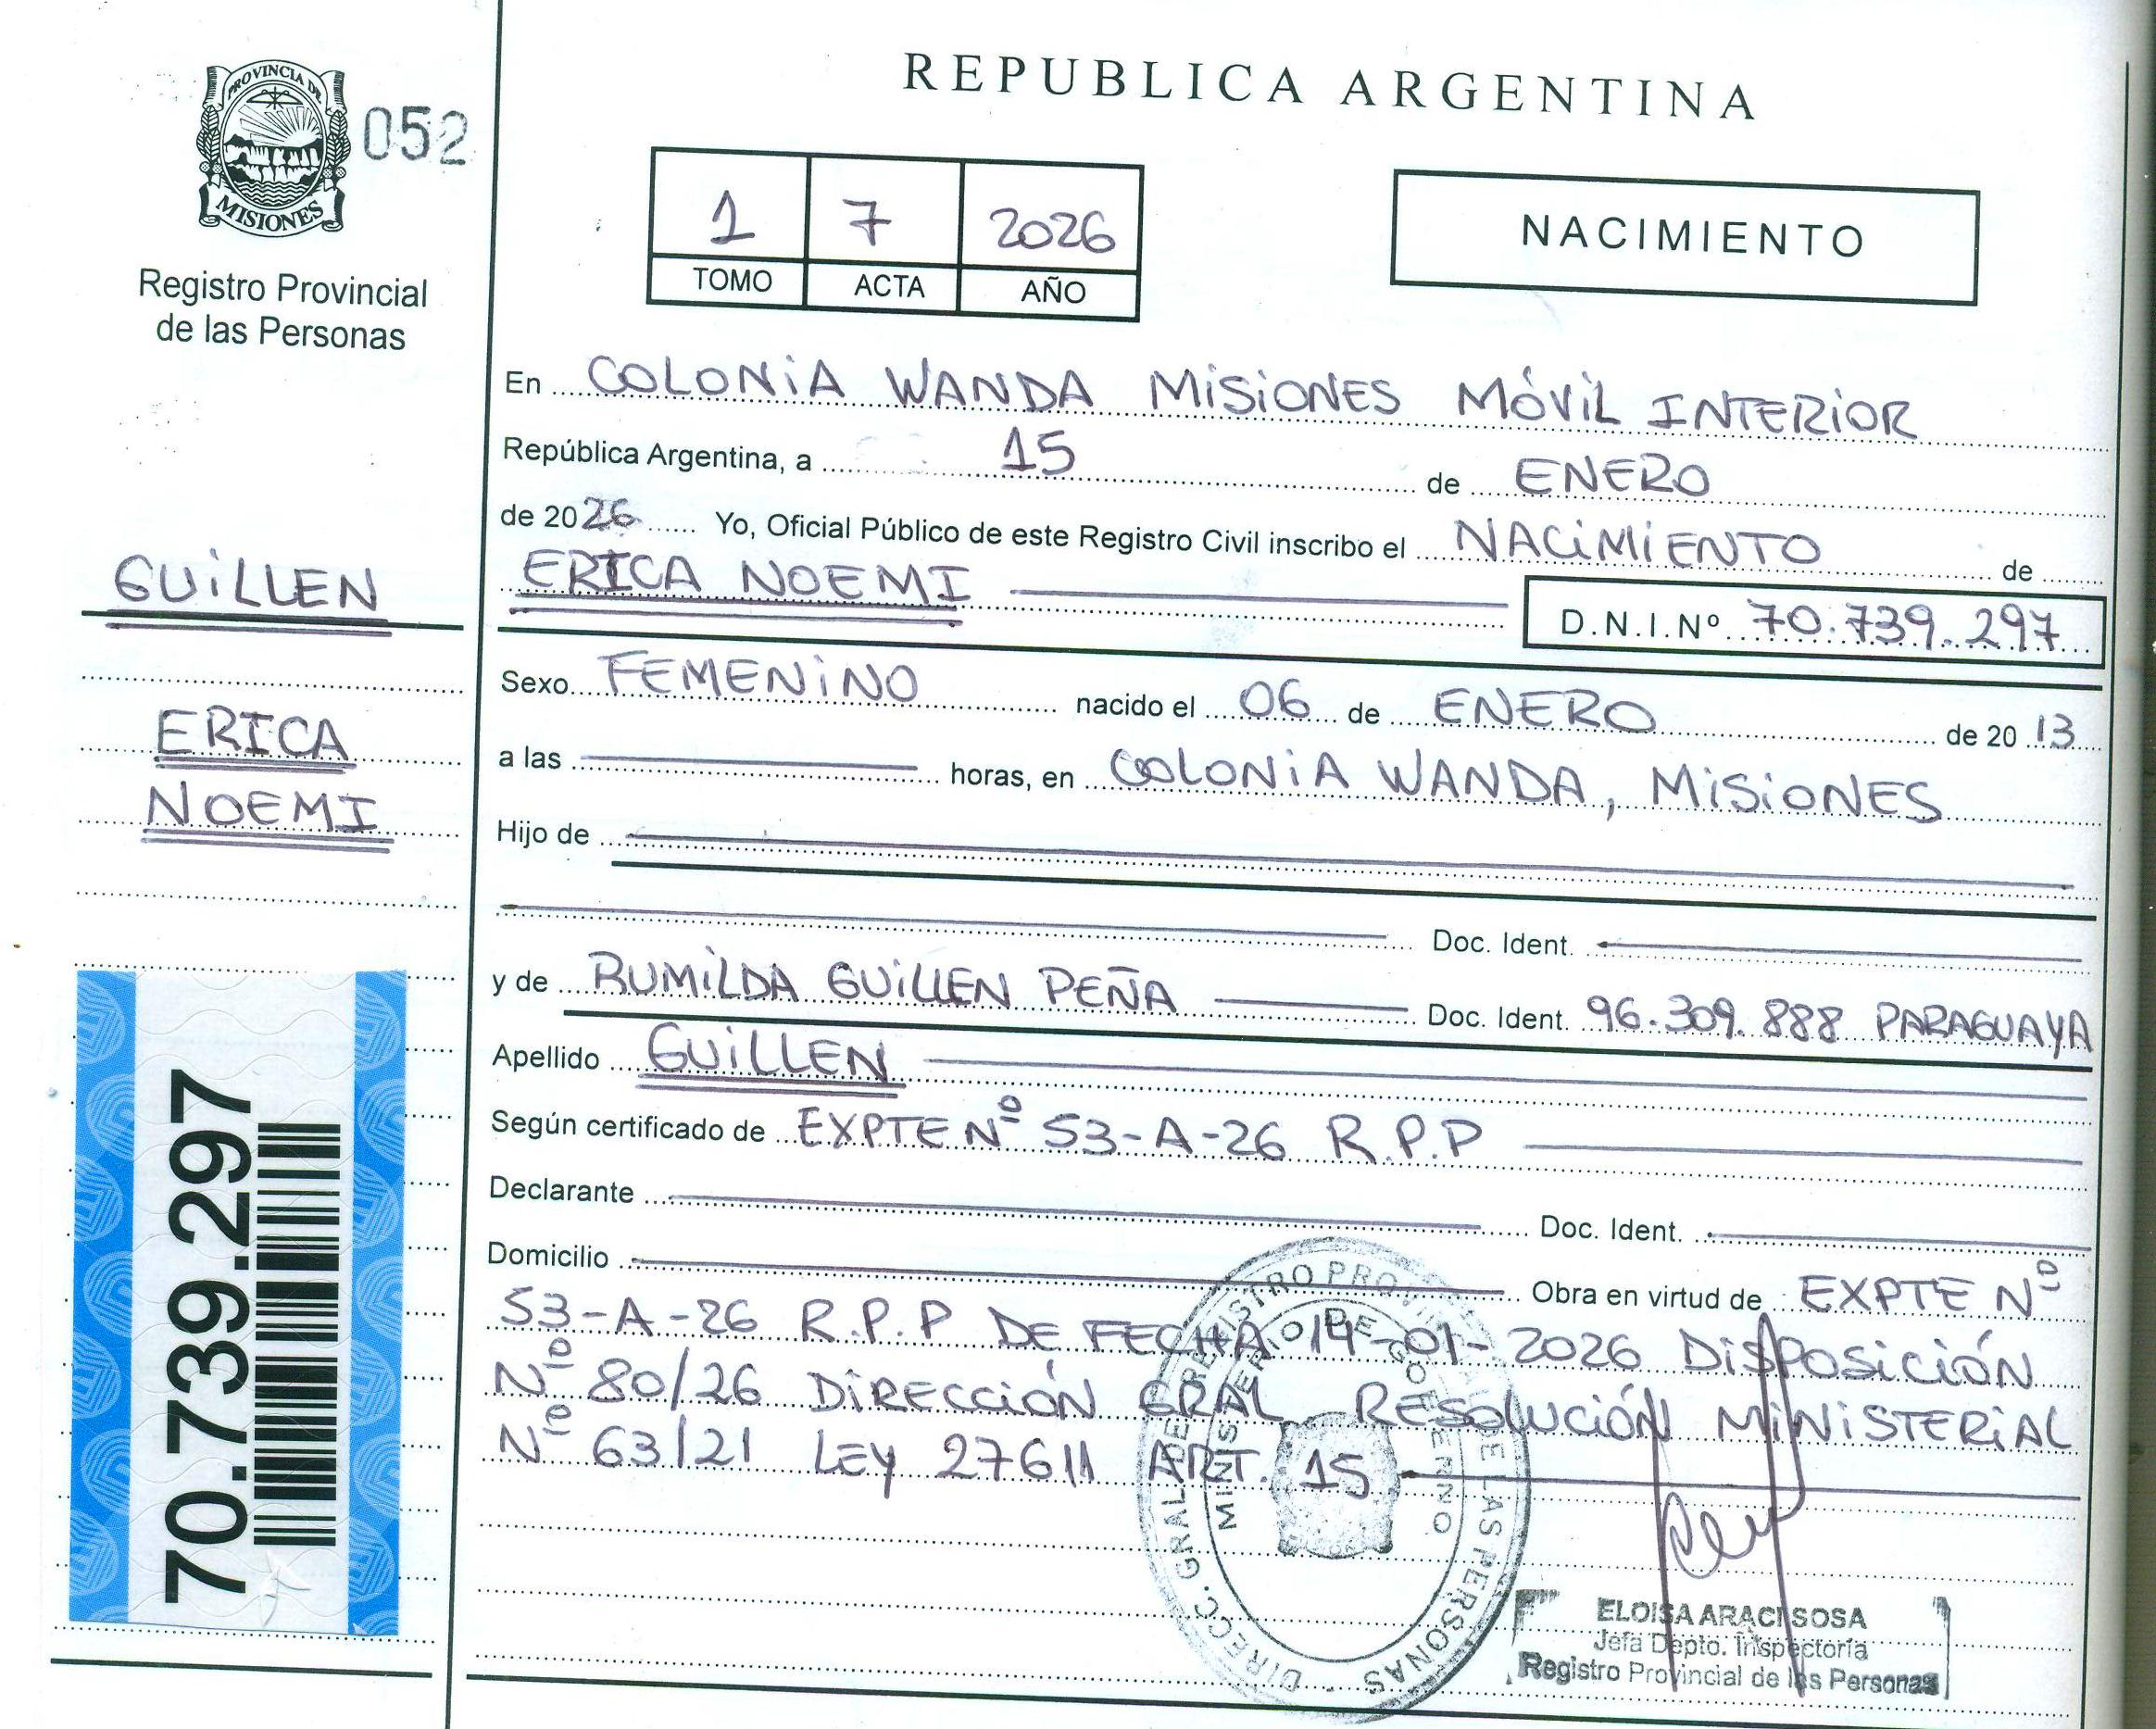 PROVINCIA DE
MISIONES
052
Registro Provincial
de las Personas
GUILLEN
ERICA
NOEMI
70.739.297
REPUBLICA ARGENTINA
1 7 2026
TOMO ACTA AÑO
NACIMIENTO
En COLONIA WANDA MISIONES MÓVIL INTERIOR
República Argentina, a 15 de ENERO
de 2026 Yo, Oficial Público de este Registro Civil inscribo el NACIMIENTO de
ERICA NOEMI
D.N.I.Nº 70.739.297
Sexo FEMENINO nacido el 06 de ENERO de 2013
a las horas, en COLONIA WANDA, MISIONES
Hijo de
Doc. Ident.
y de RUMILDA GUILLEN PEÑA Doc. Ident. 96.309.888 PARAGUAYA
Apellido GUILLEN
Según certificado de EXPTE Nº 53-A-26 R.P.P
Declarante Doc. Ident.
Domicilio Obra en virtud de EXPTE Nº
53-A-26 R.P.P DE FECHA 14-01-2026 DISPOSICIÓN
Nº 80/26 DIRECCIÓN GRAL RESOLUCIÓN MINISTERIAL
Nº 63/21 LEY 27611 ART. 15
DIRECC. GRAL. DEL REGISTRO PROVINCIAL DE LAS PERSONAS
MINISTERIO DE GOBIERNO
ELOISA ARACI SOSA
Jefa Depto. Inspectoría
Registro Provincial de las Personas